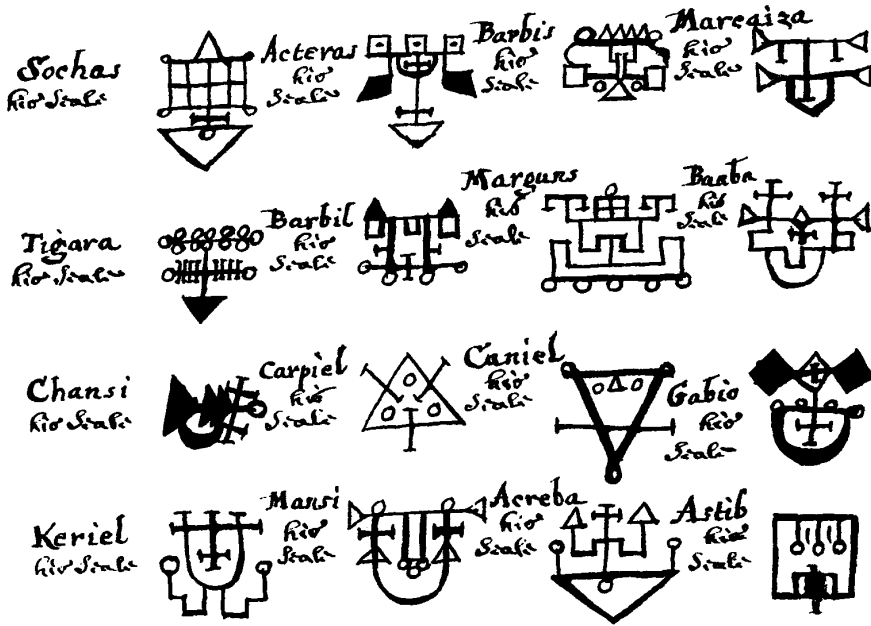 Sochas
his Seale
Acteras
his
Seale
Barbis
his
Seale
Marcaiza
his
Seale
Tigara
his Seale
Barbil
his
Seale
Marguns
his
Seale
Baaba
his
Seale
Chansi
his Seale
Carpiel
his
Seale
Caniel
his
Seale
Gabio
his
Seale
Keriel
his Seale
Mansi
his
Seale
Acreba
his
Seale
Astib
his
Seale